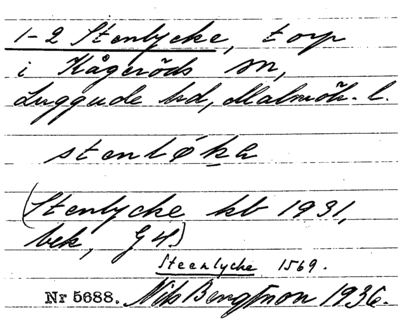 1-2 Stenlycke, torp
i Kågeröds sn,
Luggude hd, Malmöh. l.
stenløka
(Stenlycke kb 1931,
bek, GH.)
Steenlycke 1569.
Nr 5688. Nils Bengtsson 1936.